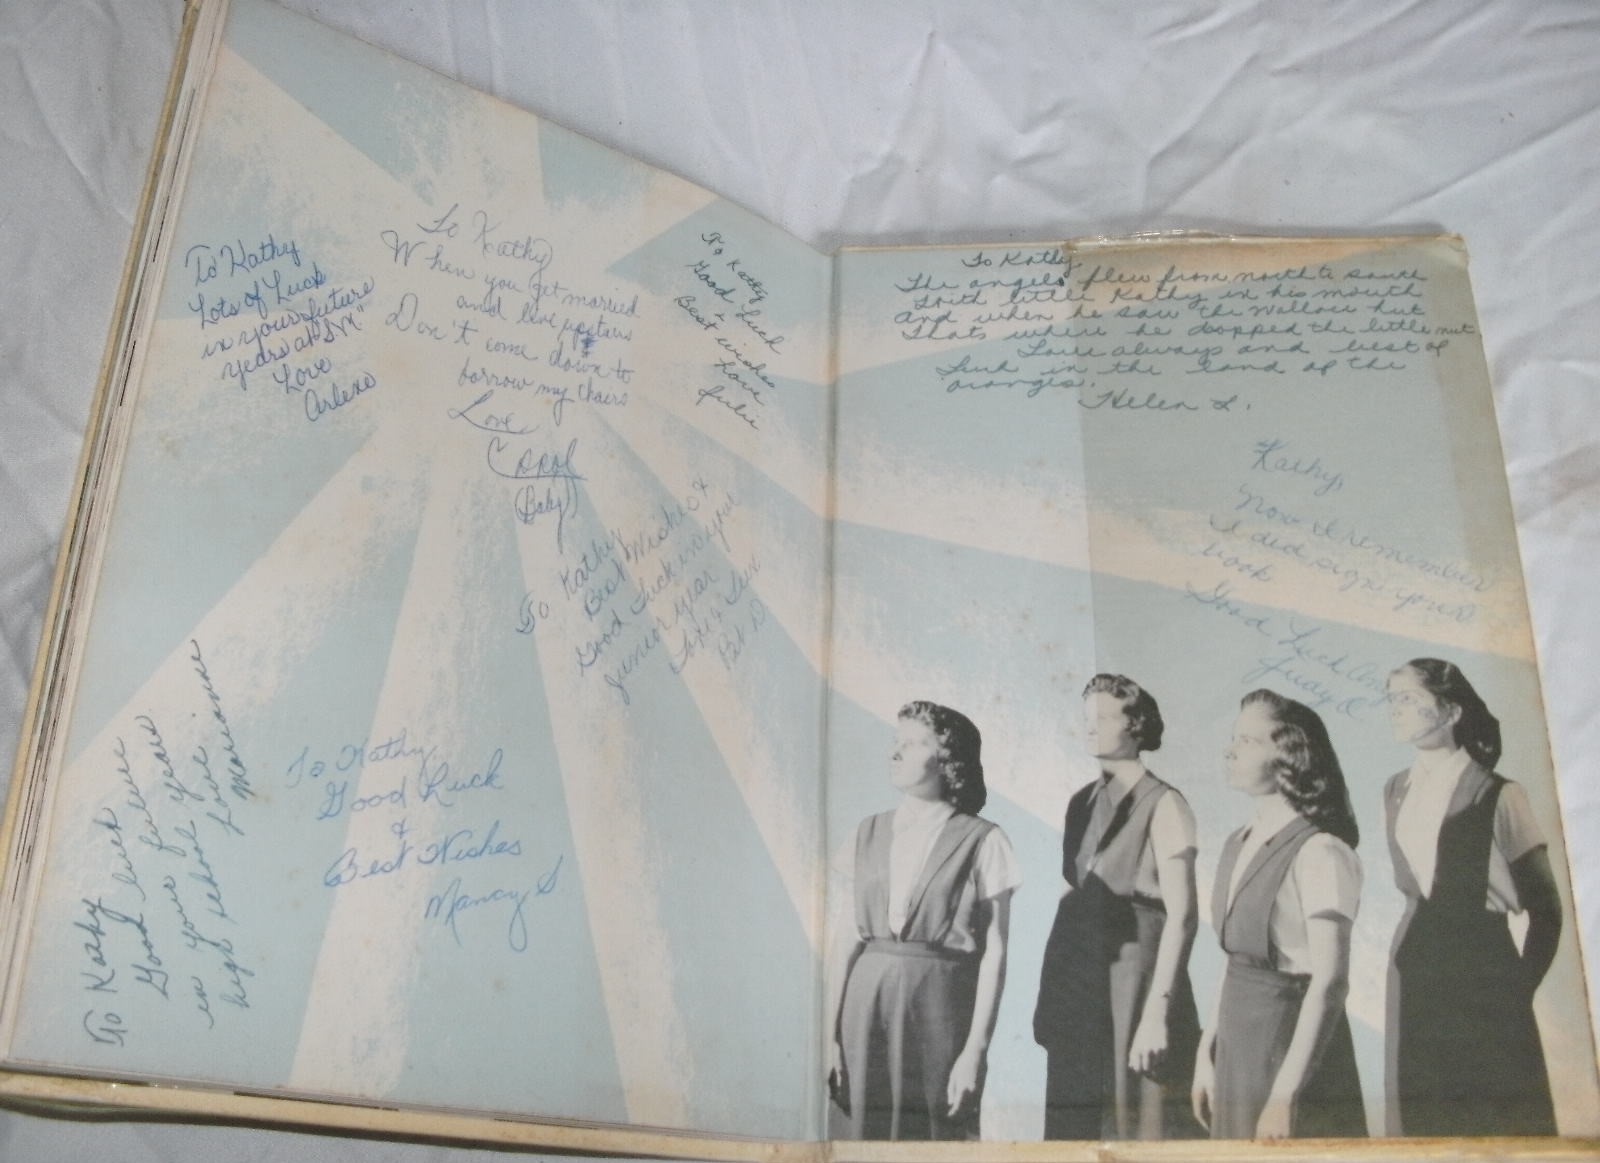 To Kathy
Lots of Luck
in your future
years at "S.M."
Love
Arlene
To Kathy
When you get married
and live upstairs
Don't come down to
borrow my chairs
Love
Carol
(Baby)
To Kathy
Good Luck
+
Best wishes
Love
Julie
To Kathy
Best Wishes &
Good Luck in your
junior year
Love
Pat D
To Kathy
Good luck
in your future years
high school
Love
Marianne
To Kathy
Good Luck
&
Best Wishes
Nancy S.
To Kathy
The angels flew from north to
With little Kathy in his mouth
and when he saw the Wallace hut
Thats where he dropped the little nut
Love always and best of
Luck in the land of the
oranges.
Helen L.
Kathy,
Now I remember
I did sign your
book
Good Luck
Judy O